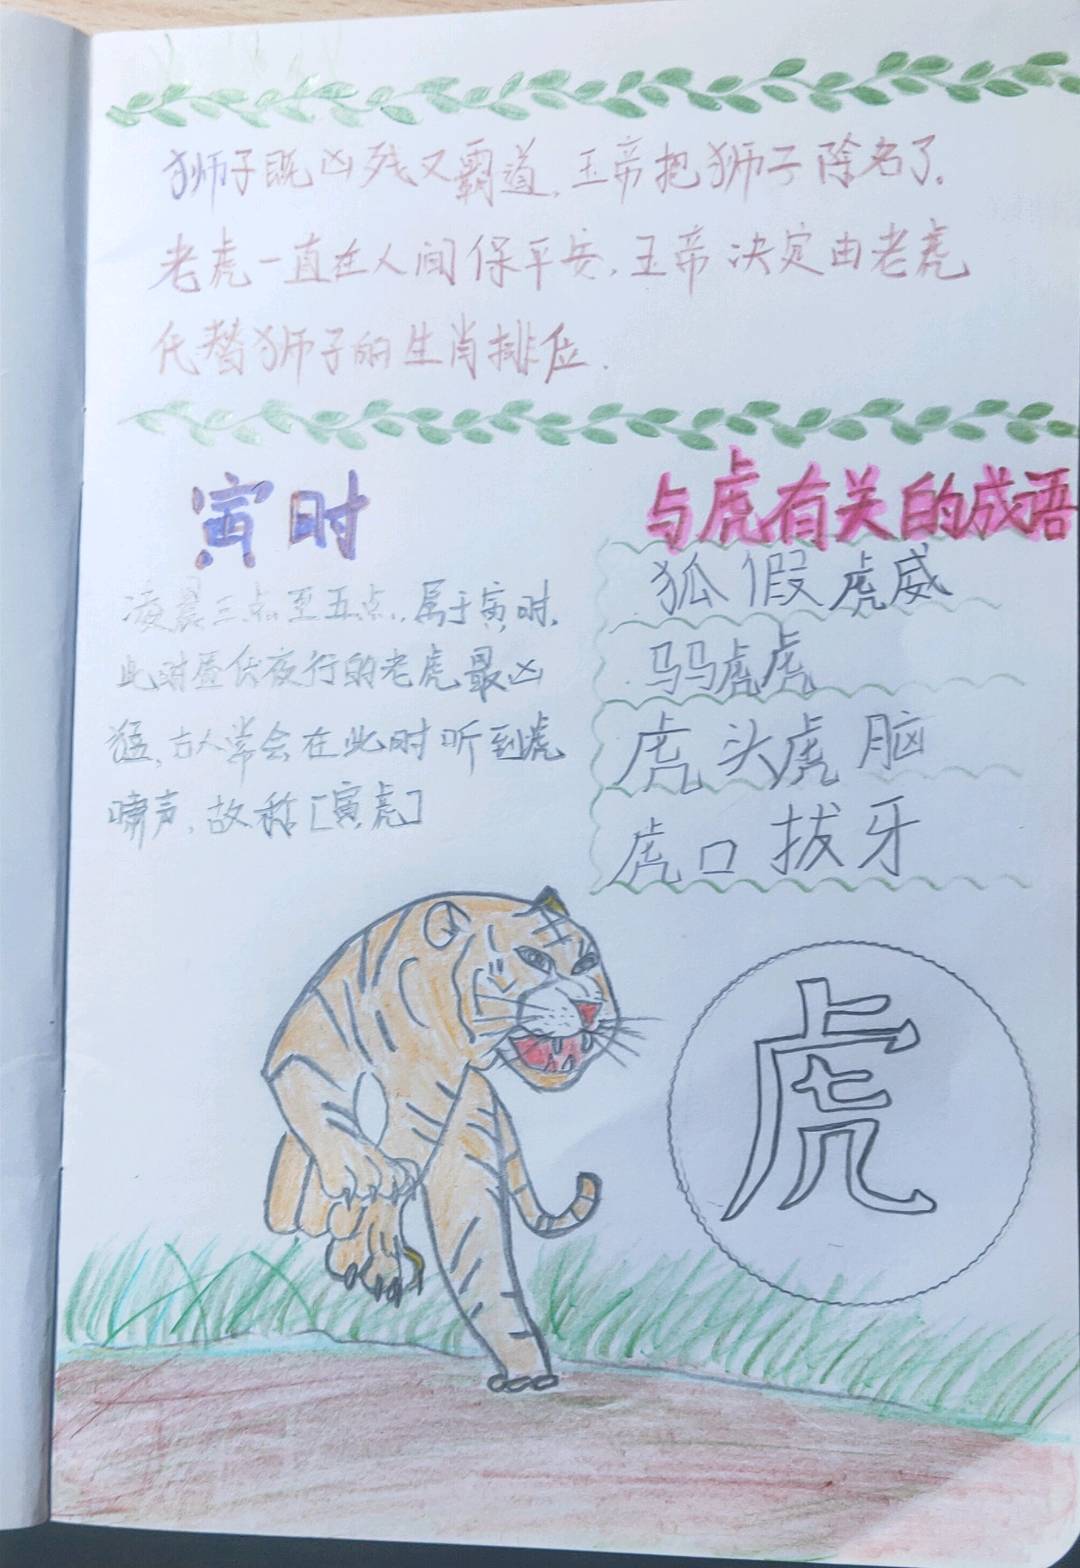 狮子既凶残又霸道,玉帝把狮子除名了.
老虎一直在人间保平安,玉帝决定由老虎
代替狮子的生肖排位.
寅时
凌晨三点至五点,属于寅时.
此时昼伏夜行的老虎最凶
猛,古人常会在此时听到虎
啸声,故称[寅虎]
与虎有关的成语
狐假虎威
马马虎虎
虎头虎脑
虎口拔牙
虎